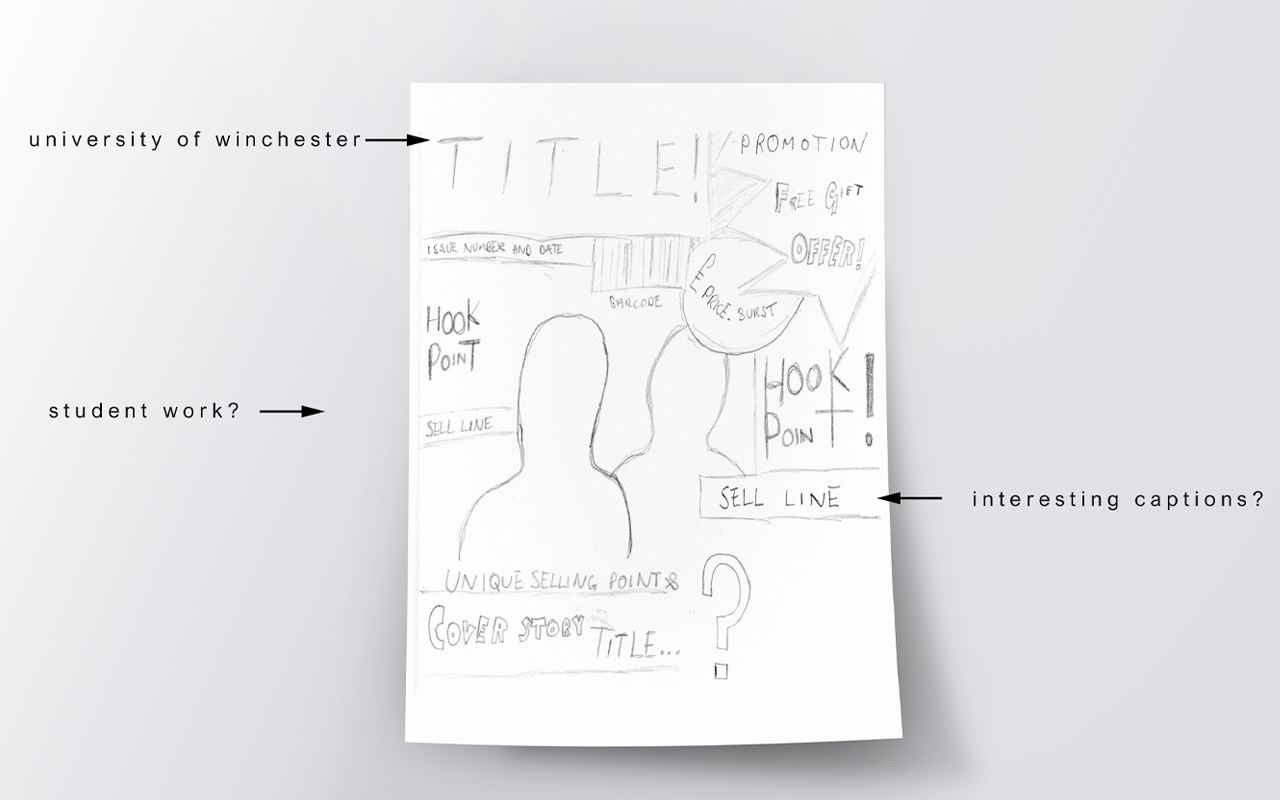 university of winchester
TITLE!
PROMOTION
FREE GIFT
OFFER!
ISSUE NUMBER AND DATE
BARCODE
£ PRICE. BURST
HOOK
POINT
HOOK
POINT!
student work?
SELL LINE
SELL LINE
interesting captions?
UNIQUE SELLING POINT &
COVER STORY TITLE...
?